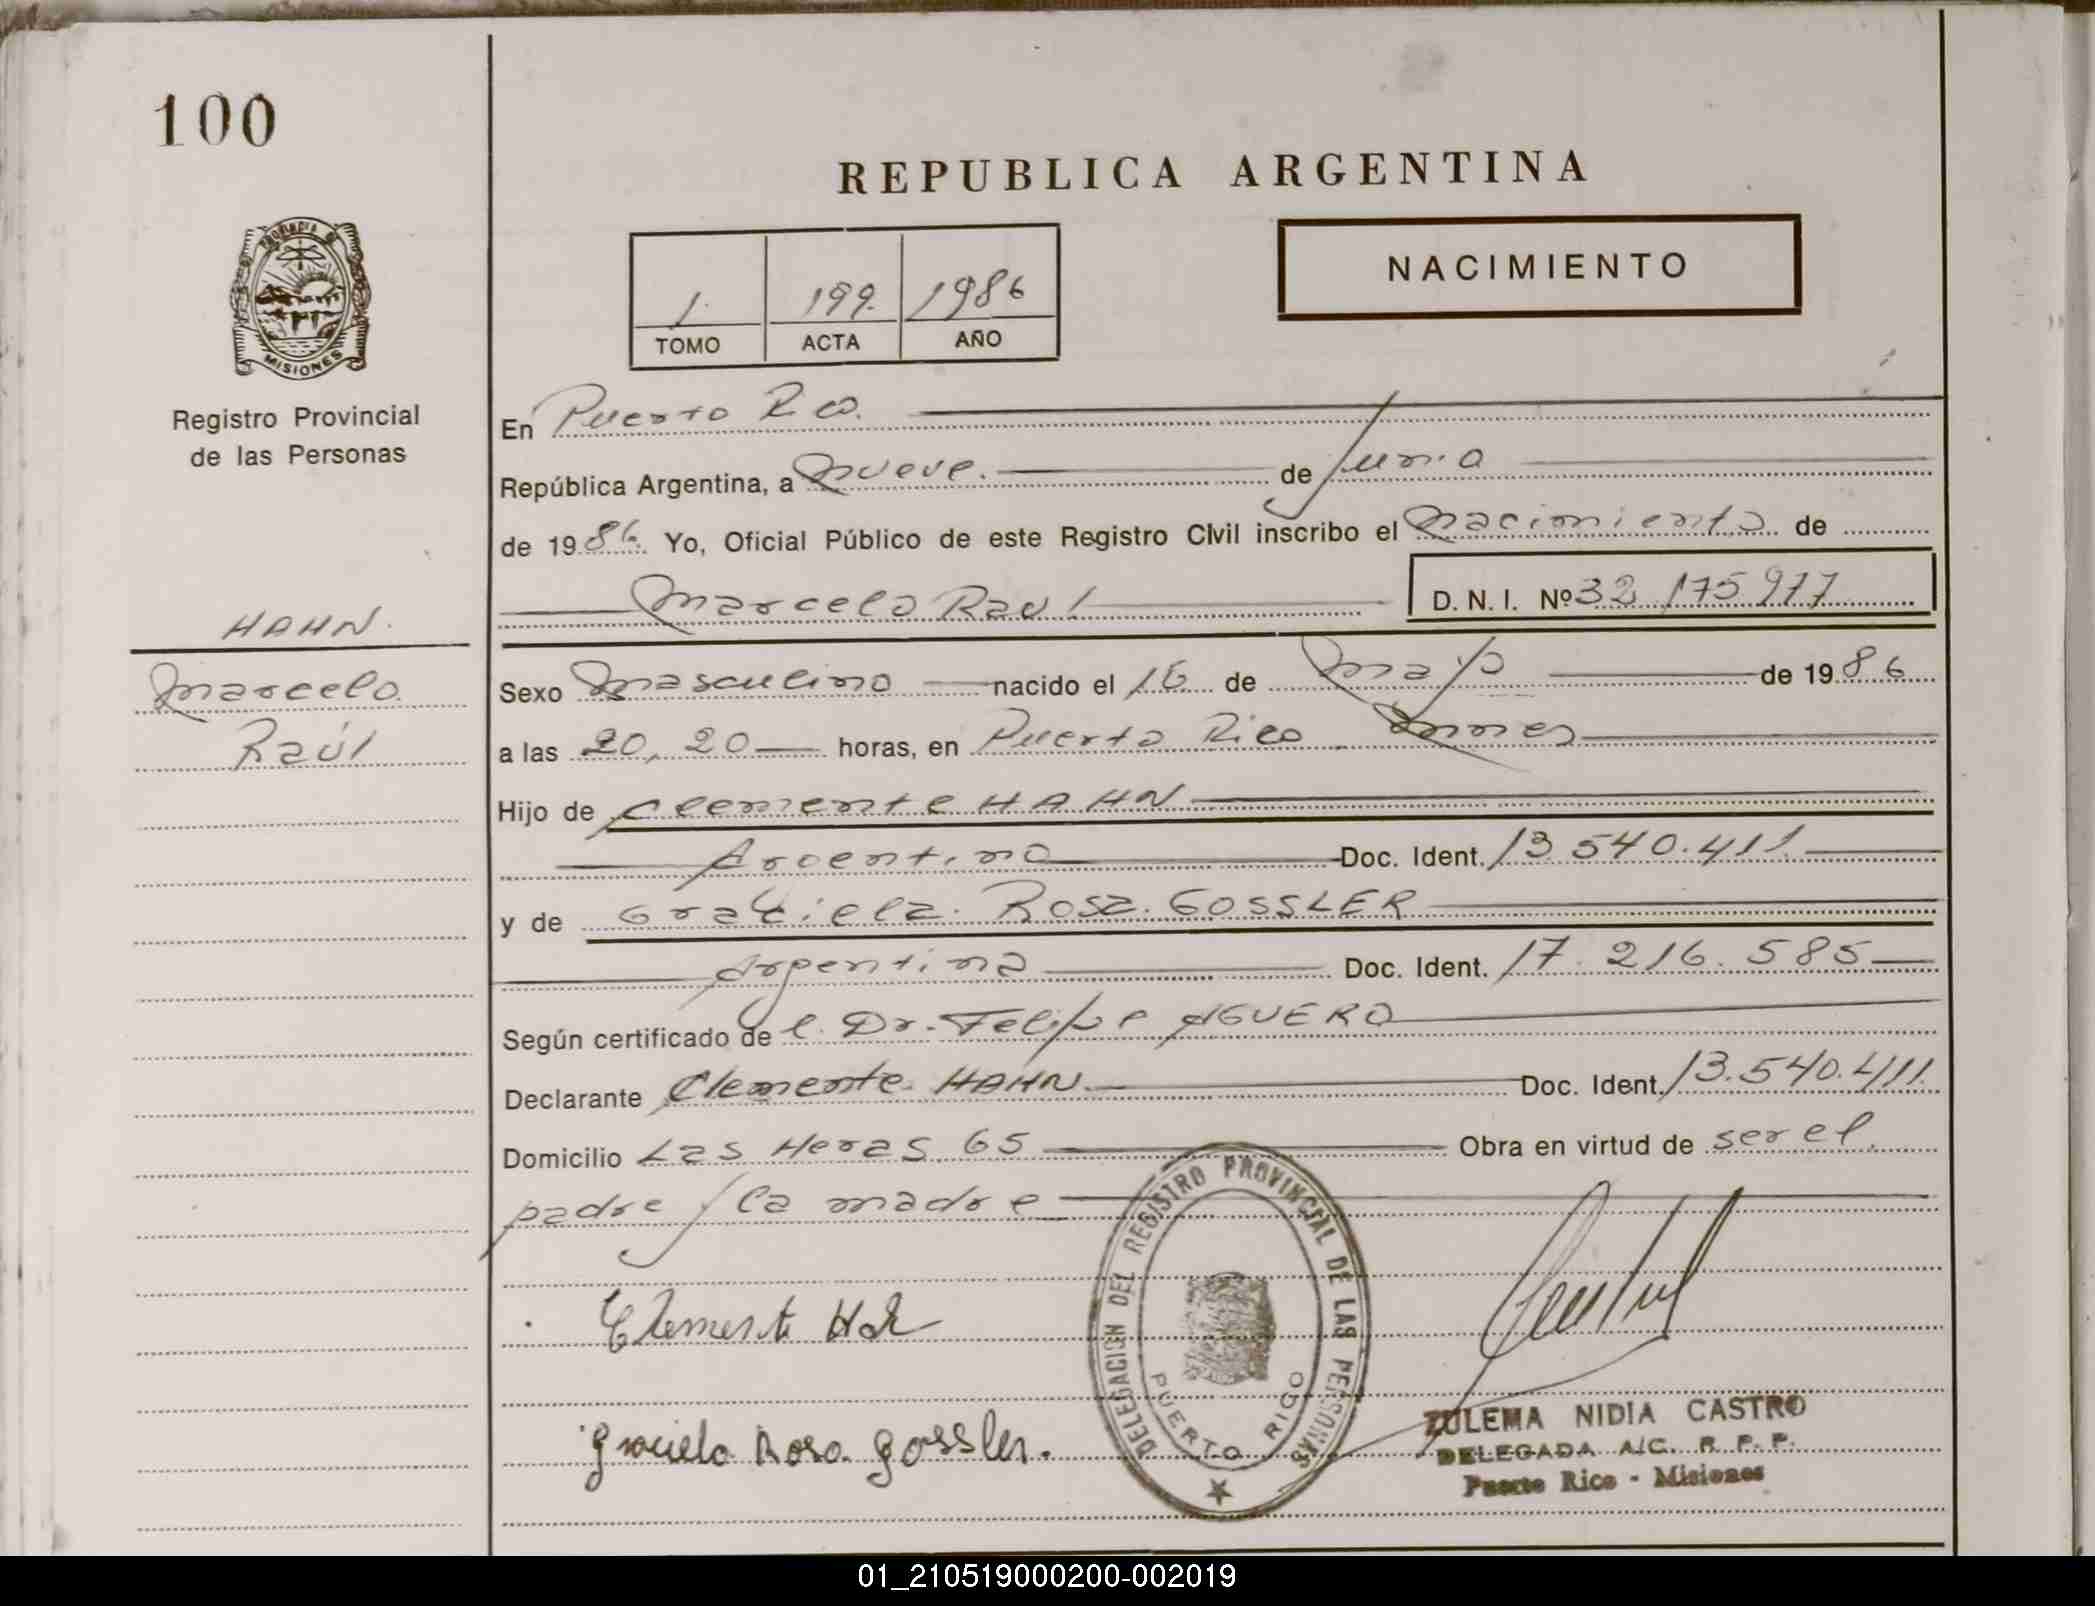 100
REPUBLICA ARGENTINA
NACIMIENTO
1. 199. 1986
TOMO ACTA AÑO
PROVINCIA DE
MISIONES
Registro Provincial
de las Personas
HAHN.
Marcelo
Raúl
En Puerto Rco.
República Argentina, a nueve. de Junio
de 1986. Yo, Oficial Público de este Registro Civil inscribo el nacimiento de
Marcelo Raul D. N. I. Nº 32 175 977
Sexo masculino nacido el 16 de Mayo de 1986
a las 20,20 horas, en Puerto Rico
Hijo de Clemente HAHN
Argentino Doc. Ident. 13 540.411
y de Graciela Rosa GOSSLER
Argentina Doc. Ident. 17.216.585
Según certificado de l. Dr. Felipe AGUERO
Declarante Clemente HAHN Doc. Ident. 13.540.411
Domicilio Las Heras 65 Obra en virtud de ser el
padre y la madre
Clemente
Graciela Rosa Gossler.
DELEGACION DEL REGISTRO PROVINCIAL DE LAS PERSONAS
PUERTO RICO
ZULEMA NIDIA CASTRO
DELEGADA A/C. R. P. P.
Puerto Rico - Misiones
01_210519000200-002019